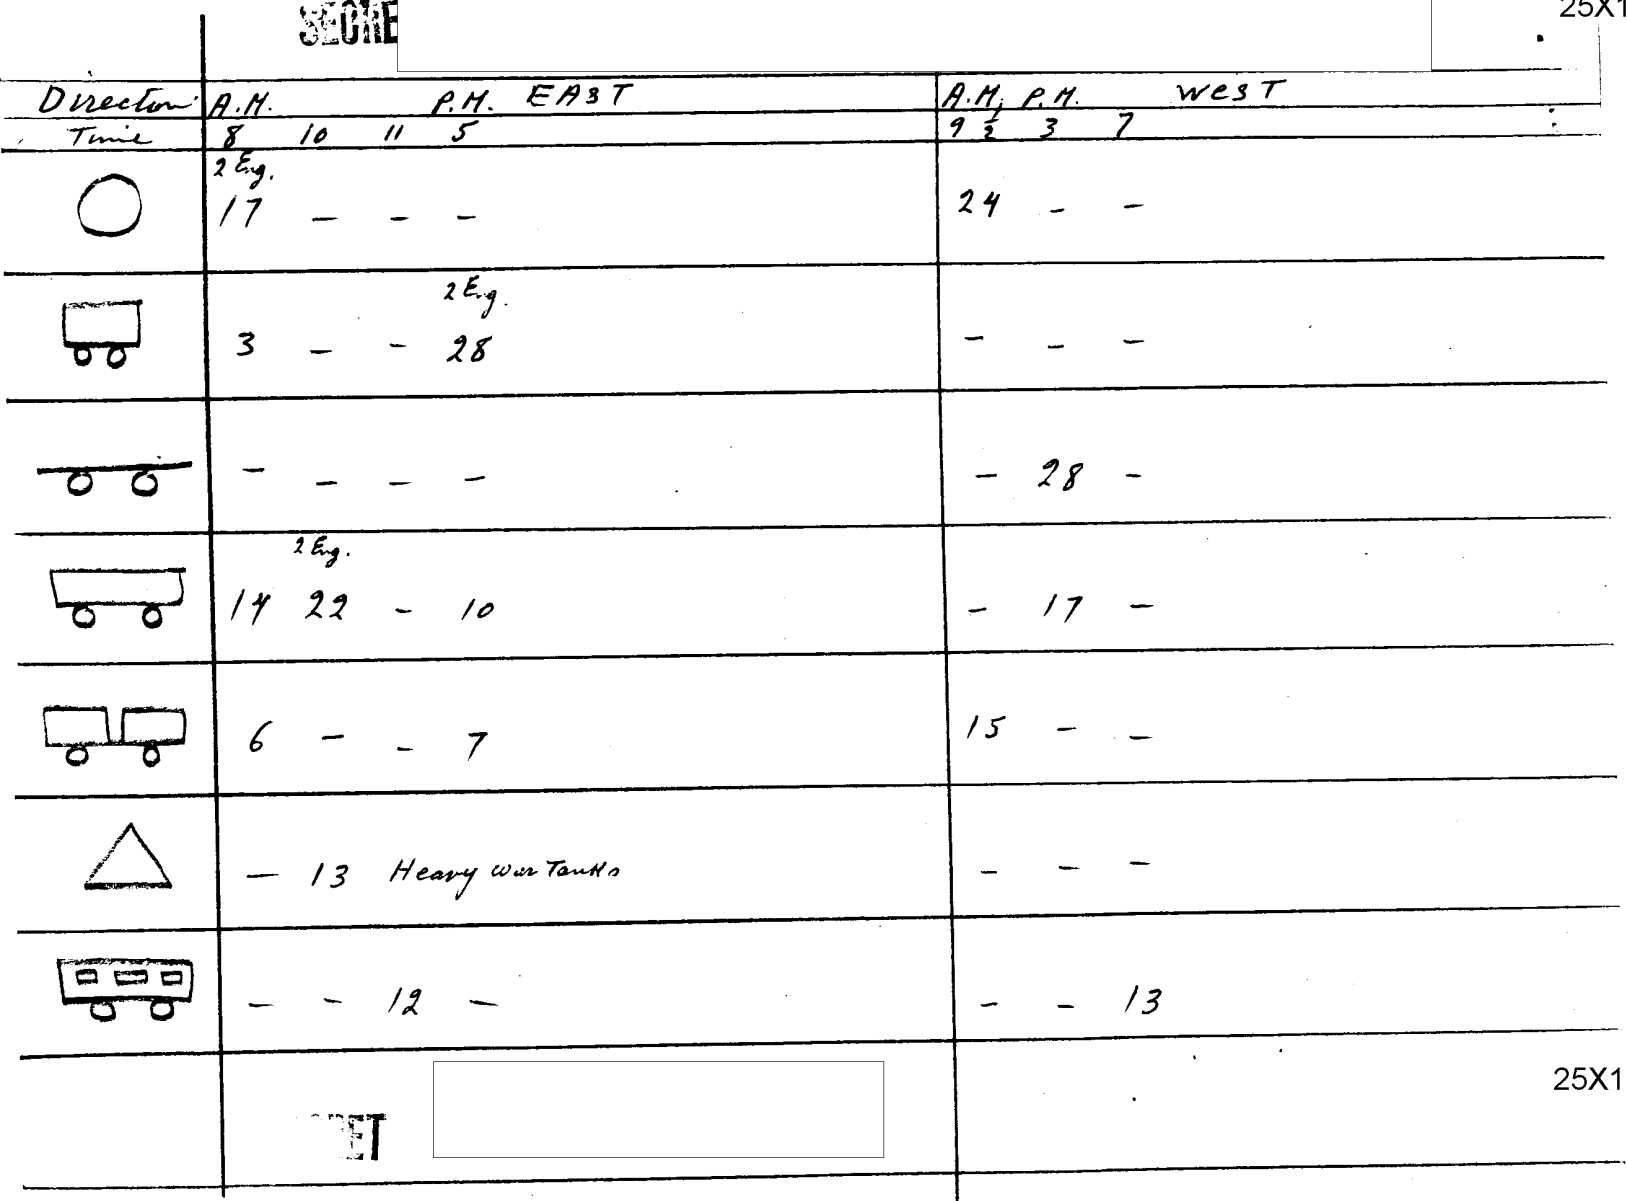 SECRE
25X1
Direction A.M. P.M. EAST A.M. P.M. WEST
Time 8 10 11 5 9 1/2 3 7
2 Eng.
17 – – – 24 – –
2 Eng.
3 – – 28 – – –
– – – – – 28 –
2 Eng.
14 22 – 10 – 17 –
6 – – 7 15 – –
– 13 Heavy war Tanks – – –
– – 12 – – – 13
25X1
ET